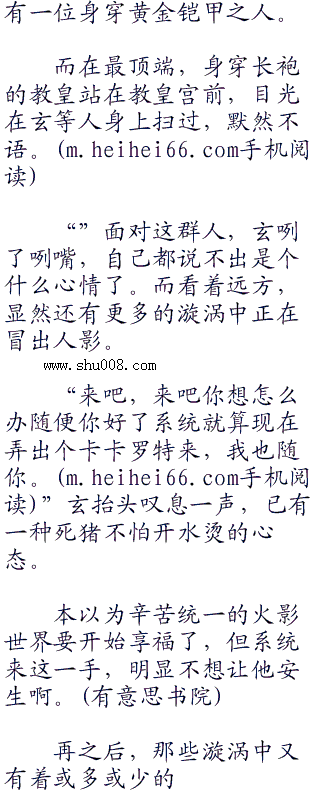 有一位身穿黄金铠甲之人。
而在最顶端，身穿长袍
的教皇站在教皇宫前，目光
在玄等人身上扫过，默然不
语。(m.heihei66.com手机阅
读)
“”面对这群人，玄咧
了咧嘴，自己都说不出是个
什么心情了。而看着远方，
显然还有更多的漩涡中正在
冒出人影。
www.shu008.com
“来吧，来吧你想怎么
办随便你好了系统就算现在
弄出个卡卡罗特来，我也随
你。(m.heihei66.com手机阅
读)”玄抬头叹息一声，已有
一种死猪不怕开水烫的心
态。
本以为辛苦统一的火影
世界要开始享福了，但系统
来这一手，明显不想让他安
生啊。(有意思书院)
再之后，那些漩涡中又
有着或多或少的